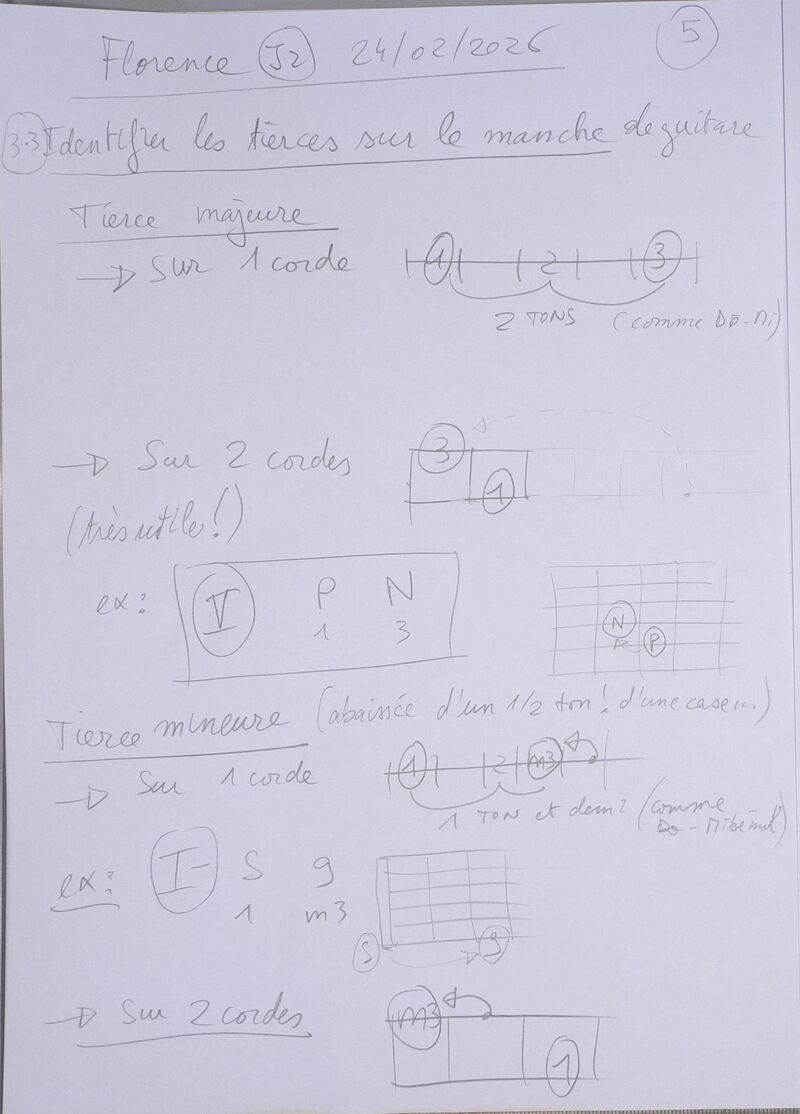 Florence J2 24/02/2026 5
3.3 Identifier les tierces sur le manche de guitare
Tierce majeure
→ Sur 1 corde 1 2 3
2 TONS (comme Do-Mi)
→ Sur 2 cordes 3
1
(très utile !)
ex: V P N
1 3
N
P
Tierce mineure (abaissée d'un 1/2 ton ! d'une case
→ Sur 1 corde 1 2 m3
1 TON et demi (comme
Do-Mibémol)
ex: I- S g
1 m3
S g
→ Sur 2 cordes m3
1